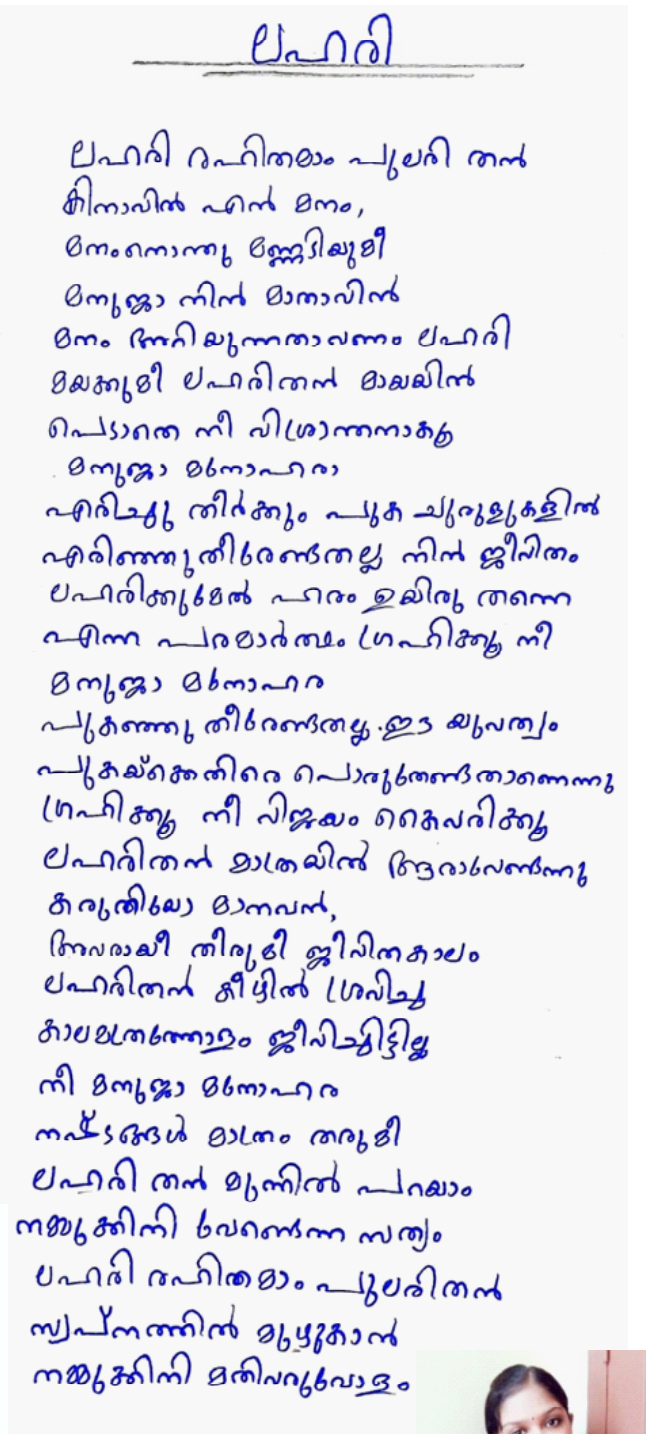 ലഹരി
ലഹരി രഹിതമാം പുലരി തൻ
കിനാവിൽ എൻ മനം,
മനംനൊന്തു മണ്ണടിയുമീ
മനുജാ നിൻ മാതാവിൻ
മനം അറിയുന്നതാവണം ലഹരി
മയക്കുമീ ലഹരിതൻ മായയിൽ
പെടാതെ നീ വിശ്രാന്തനാകൂ
മനുജാ മനോഹരാ
എരിച്ചു തീർക്കും പുക ചുരുളുകളിൽ
എരിഞ്ഞുതീരേണ്ടതല്ല നിൻ ജീവിതം
ലഹരിക്കുമേൽ ഹരം ഉയിരു തന്നെ
എന്ന പരമാർത്ഥം ഗ്രഹിക്കൂ നീ
മനുജാ മനോഹര
പുകഞ്ഞു തീരേണ്ടതല്ല. ഈ യുവത്വം
പുകയ്ക്കെതിരെ പൊരുതേണ്ടതാണെന്നു
ഗ്രഹിക്കൂ നീ വിജയം കൈവരിക്കൂ
ലഹരിതൻ മാത്രയിൽ ആരാവേണ്ടന്നു
കരുതിയോ മാനവൻ,
അവരായീ തിരുമീ ജീവിതകാലം
ലഹരിതൻ കീഴിൽ ശ്രവിച്ച
കാലമത്രത്തോളം ജീവിച്ചിട്ടില്ല
നീ മനുജാ മനോഹര
നഷ്ടങ്ങൾ മാത്രം തരുമീ
ലഹരി തൻ മുന്നിൽ പറയാം
നമ്മുക്കിനി വേണ്ടെന്ന സത്യം
ലഹരി രഹിതമാം പുലരിതൻ
സ്വപ്നത്തിൽ മുഴുകാൻ
നമ്മുക്കിനി മതിവരുവോളം